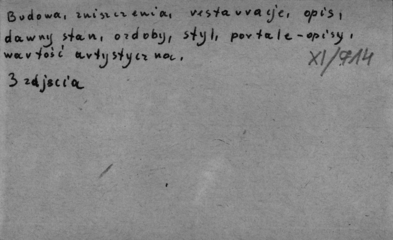 Budowa, zniszczenia, restauracje, opis,
dawny stan, ozdoby, styl, portale - opisy,
wartość artystyczna.
XI/914
3 zdjęcia